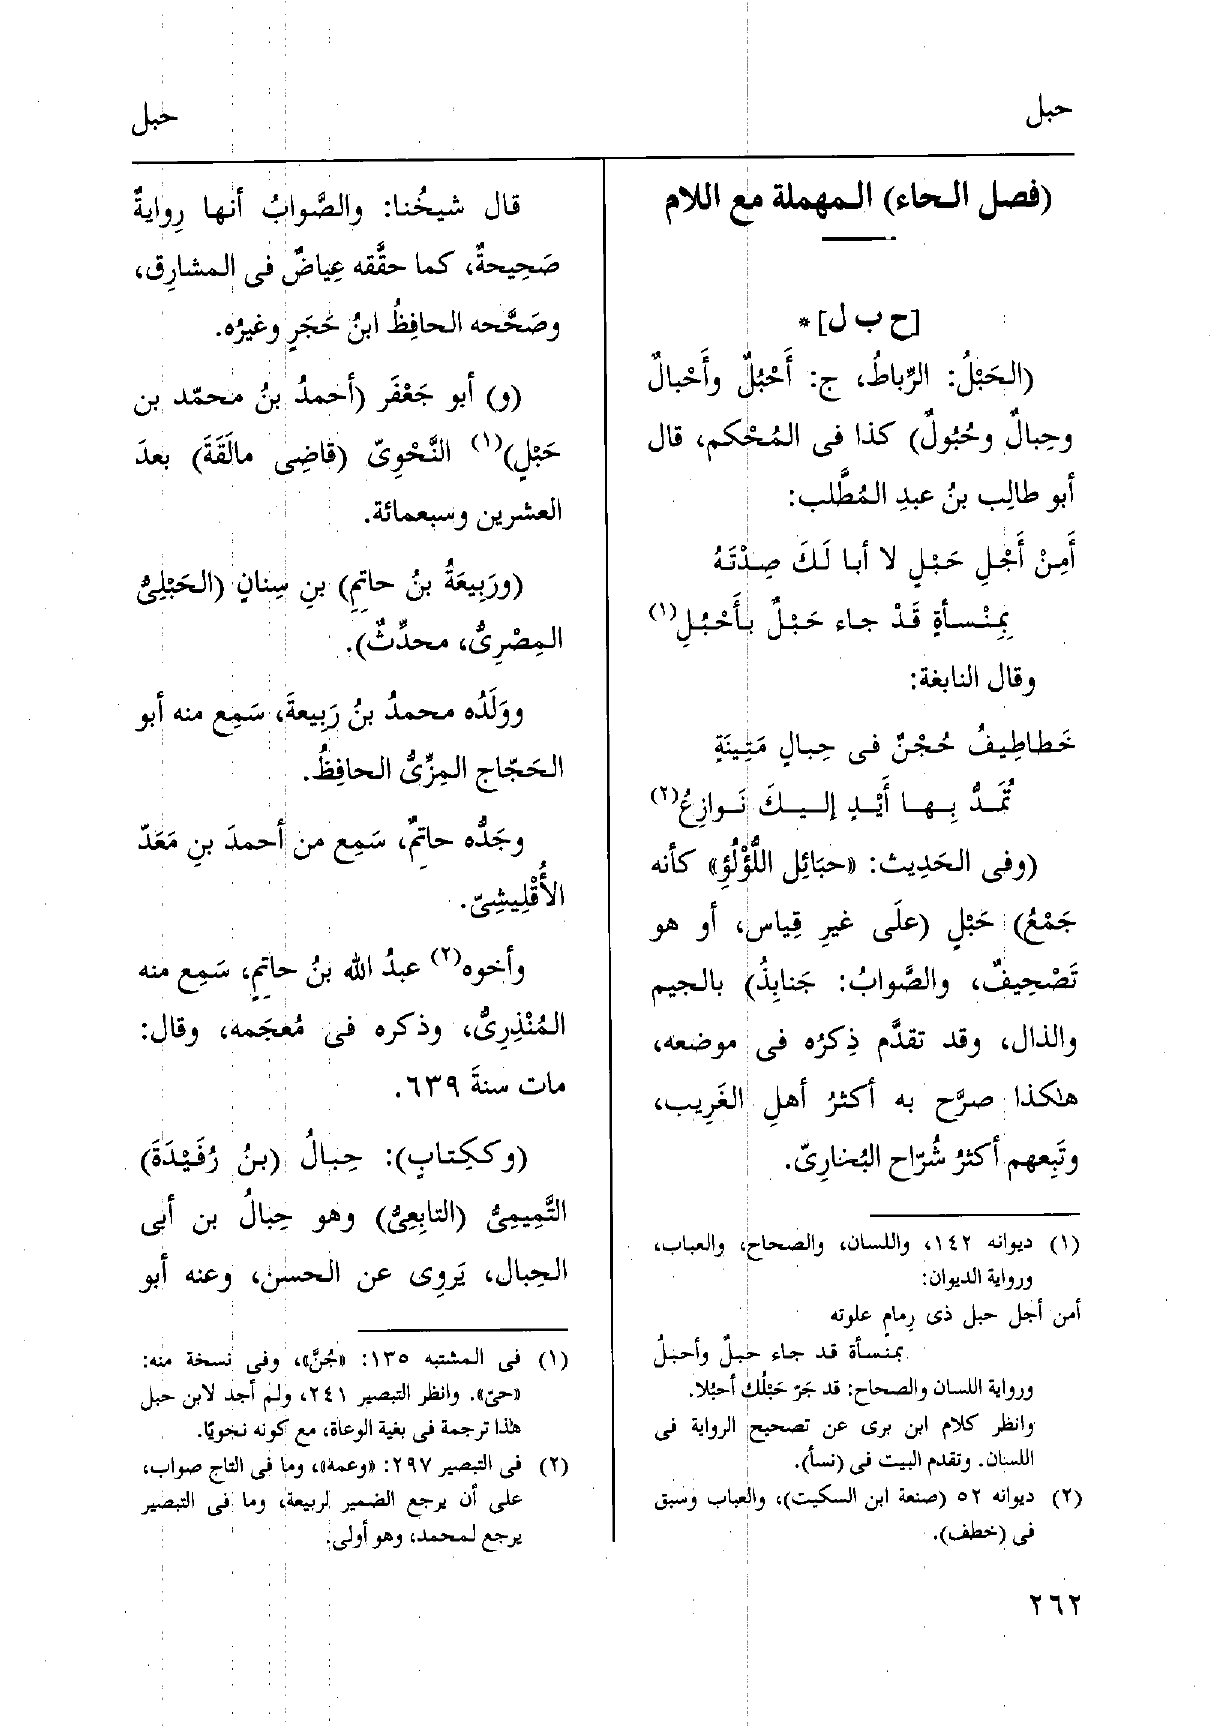 حبل
حبل
(فصل الحاء) المهملة مع اللام
[ح ب ل] *
(الحَبْلُ: الرِّباطُ، ج: أَحْبُلٌ وأَحْبالٌ
وحِبالٌ وحُبُولٌ) كذا فى المُحْكم، قال
أبو طالِب بنُ عبدِ المُطَّلب:
أَمِنْ أَجْلِ حَبْلٍ لا أبا لَكَ صِدْتَهُ
بِمِنْسأةٍ قَدْ جاء حَبْلٌ بأَحْبُلِ(١)
وقال النابغة:
خَطاطِيفُ حُجْنٌ فى حِبالٍ مَتِينَةٍ
تُمَدُّ بِها أَيْدٍ إليكَ نَوازِعُ(٢)
(وفى الحَدِيث: «حبَائِل اللُّؤْلُؤِ» كأنه
جَمْعُ) حَبْلٍ (علَى غيرِ قِياس، أو هو
تَصْحِيفٌ، والصَّوابُ: جَنابِذُ) بالجيم
والذال، وقد تقدَّم ذِكرُه فى موضعه،
هلكذا صرَّح به أكثرُ أهلِ الغَرِيب،
وتَبِعهم أكثرُ شُرّاح البُخارىّ.
(١) ديوانه ١٤٢، واللسان، والصحاح، والعباب،
ورواية الديوان:
أمن أجل حبل ذى رِمامٍ علوته
بمنسأة قد جاء حبلٌ وأحبلُ
ورواية اللسان والصحاح: قد جَرّ حَبْلُك أحبُلا.
وانظر كلام ابن برى عن تصحيح الرواية فى
اللسان. وتقدم البيت فى (نسأ).
(٢) ديوانه ٥٢ (صنعة ابن السكيت)، والعباب وسبق
فى (خطف).
قال شيخُنا: والصَّوابُ أنها رِوايةٌ
صَحِيحةٌ، كما حقَّقه عِياضٌ فى المشارِق،
وصَحَّحه الحافِظُ ابنُ حَجَرٍ وغيرُه.
(و) أبو جَعْفَر (أحمدُ بنُ محمّد بن
حَبْلٍ)(١) النَّحْوِىّ (قاضِى مالَقَةَ) بعدَ
العشرين وسبعمائة.
(ورَبِيعَةُ بنُ حاتِمِ) بنِ سِنانٍ (الحَبْلِىُّ
المِصْرِىُّ، محدِّثٌ).
ووَلَدُه محمدُ بنُ رَبِيعةَ، سَمِع منه أبو
الحَجّاج المِزِّىُّ الحافِظُ.
وجَدُّه حاتِمٌ، سَمِع من أحمدَ بنِ مَعَدّ
الأُقْلِيشِىّ.
وأخوه(٢) عبدُ الله بنُ حاتِمٍ، سَمِع منه
المُنْذِرِىُّ، وذكره فى مُعجَمه، وقال:
مات سنةَ ٦٣٩.
(وككِتابٍ): حِبالُ (بنُ رُفَيْدَةَ)
التَّمِيمِىُّ (التابِعِىُّ) وهو حِبالُ بن أبى
الحِبال، يَروِى عن الحسن، وعنه أبو
(١) فى المشتبه ١٣٥: «جُنَّ»، وفى نسخة منه:
«حىّ». وانظر التبصير ٢٤١، ولم أجد لابن حبل
هلذا ترجمة فى بغية الوعاة، مع كونه نحويًا.
(٢) فى التبصير ٢٩٧: «وعمه»، وما فى التاج صواب،
على أن يرجع الضمير لربيعة، وما فى التبصير
يرجع لمحمد، وهو أولى.
٢٦٢